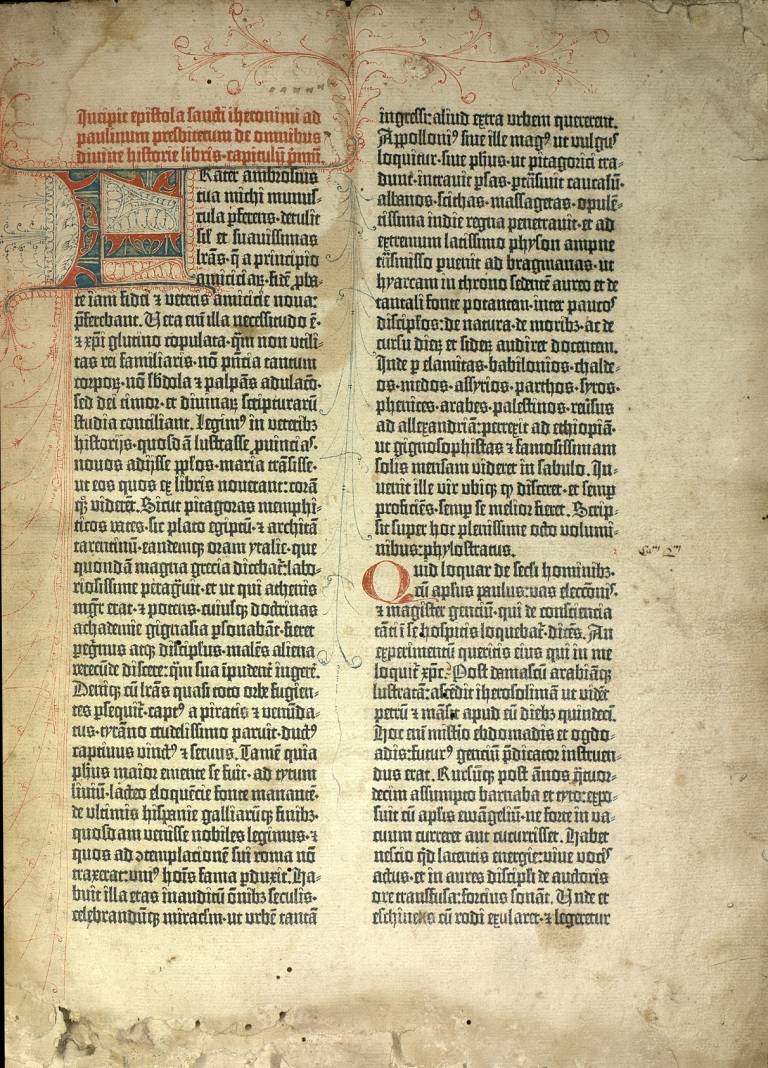 Incipit epistola sancti iheronimi ad
paulinum presbiterum de omnibus
divine historie libris·capitulū p̄mū.
FRater ambrosius
tua michi munus-
cula p̄ferens·detulit
sil̄ et suavissimas
lr̄as·q̄ a principio
amiciciaꝝ·fidē ꝓba-
te iam fidei ⁊ veteris amicicie nova:
p̄ferebant. Vera eni̅ illa necessitudo ē·
⁊ xp̄i glutino copulata·q̄m non utili-
tas rei familiaris·nō p̄ncia tantum
corpoꝝ·nō s̄bdola ⁊ palpās adulacō·
sed dei timor·et divinaꝝ scripturarū
studia conciliant. Legimꝰ in veteribꝫ
historijs·quosdā lustrasse ꝓvincias·
novos adijsse pp̄los·maria trāsisse·
ut eos quos ex libris noverant:corā
qꝫ viderēt. Sicut pitagoras memphi-
ticos vates·sic plato egiptū·⁊ architā
tarentinū·eandemqꝫ oram ytalie·que
quondā magna grecia dicebat̄:labo-
riosissime peragravit·et ut qui athenis
mgr̄ erat·⁊ potens·cuiusqꝫ doctrinas
achademie gignasia ꝑsonabāt·fieret
peg̓nus atqꝫ discipulus·malēs aliena
verecūde discere:q̄m sua īpudent̄ ingerē.
Deniqꝫ cū lr̄as quasi toto orbe fugien-
tes ꝑsequit̄·captꝰ a piratis ⁊ venūda-
tus·tyrāno crudelissimo paruit·ductꝰ
captivus vinctꝰ ⁊ servus. Tamē quia
ph̄us maior emente se fuit·ad tytum
liviū·lacteo eloquēcie fonte manantē·
de ultimis hispanie galliarūqꝫ finibꝫ·
quosdam venisse nobiles legimus·⁊
quos ad ɔtemplacionē sui roma nō
traxerat:uniꝰ hoīs fama ꝑduxit. Ha-
buit illa etas inauditū om̄ibꝫ seculis·
celebrandūqꝫ miraclm̄·ut urbē tantā
ingressi:aliud extra urbem quererent.
Appolloniꝰ sive ille magꝰ ut vulgus
loquitur·sive ph̄us·ut pitagorici tra-
dunt·intravit ꝑsas·ꝑtrāsivit caucasū·
albanos·scithas·massagetas·opulē-
tissima indie regna penetravit·et ad
extremum latissimo physon ampne
trāsmisso ꝑvenit ad bragmanas·ut
hyarcam in throno sedentē aureo et de
tantali fonte potantem·inter paucos
discipl̄os:de natura·de moribꝫ·ac de
cursu dieꝝ et sideꝝ audiret docentem.
Inde ꝑ elamitas·babilonios·chalde-
os·medos·assyrios·parthos·syros·
phenices·arabes·palestinos·revisus
ad allexandriā:perrexit ad ethiopiā·
ut gignosophistas ⁊ famosissimam
solis mensam videret in sabulo. In-
venit ille vir ubiqꝫ qd̄ disceret·et semꝑ
proficiēs·semꝑ se melior fieret. Scrip-
sit super hoc plenissime octo volumi-
nibus:phylostratus.
Quid loquar de sec̄li hominibꝫ·
cū apl̄us paulus:vas electōnis·
⁊ magister genciū·qui de consciencia
tāti ī se hospitis loquebat̄·dicēs. An
experimentū queritis eius qui in me
loquit̄ xp̄c. Post damascū arabiāqꝫ
lustratā:ascēdit iherosolimā ut vidēt
petrū ⁊ māsit apud eū diebꝫ quindeci̅.
Hoc eni̅ mistio ebdomadis et ogdo-
adis:futurꝰ genciū p̄dicator instruen-
dus erat. Rursūqꝫ post ānos q̄tuor-
decim assumpto barnaba et tyto:expo-
suit cū apl̄is ewāgeliū·ne forte in va-
cuum curreret aut cucurrisset. Habet
nescio qd̄ latentis energie:vive vocis
actus·et in aures discipl̄i de auctoris
ore transfusa:forcius sonāt. Unde et
eschineus cū rodi exularet·⁊ legeretur